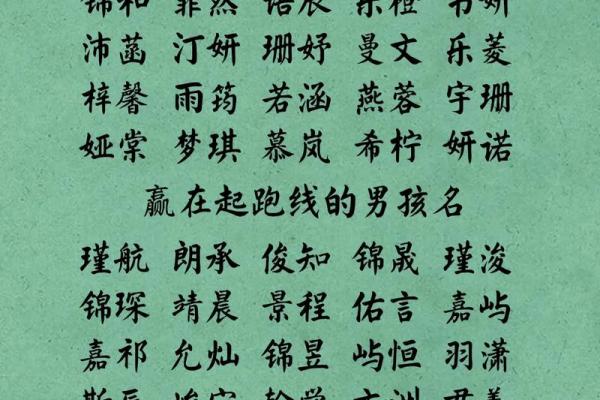 锦和 霏然 语辰 乐橙 书妍
沛菡 汀妍 珊妤 曼文 乐菱
梓馨 雨筠 若涵 燕蓉 宇珊
娅棠 梦琪 慕岚 希柠 妍诺
赢在起跑线的男孩名
瑾航 朗承 俊知 锦晟 瑾浚
锦琛 靖晨 景程 佑言 嘉屿
嘉祁 允灿 锦昱 屿恒 羽潇